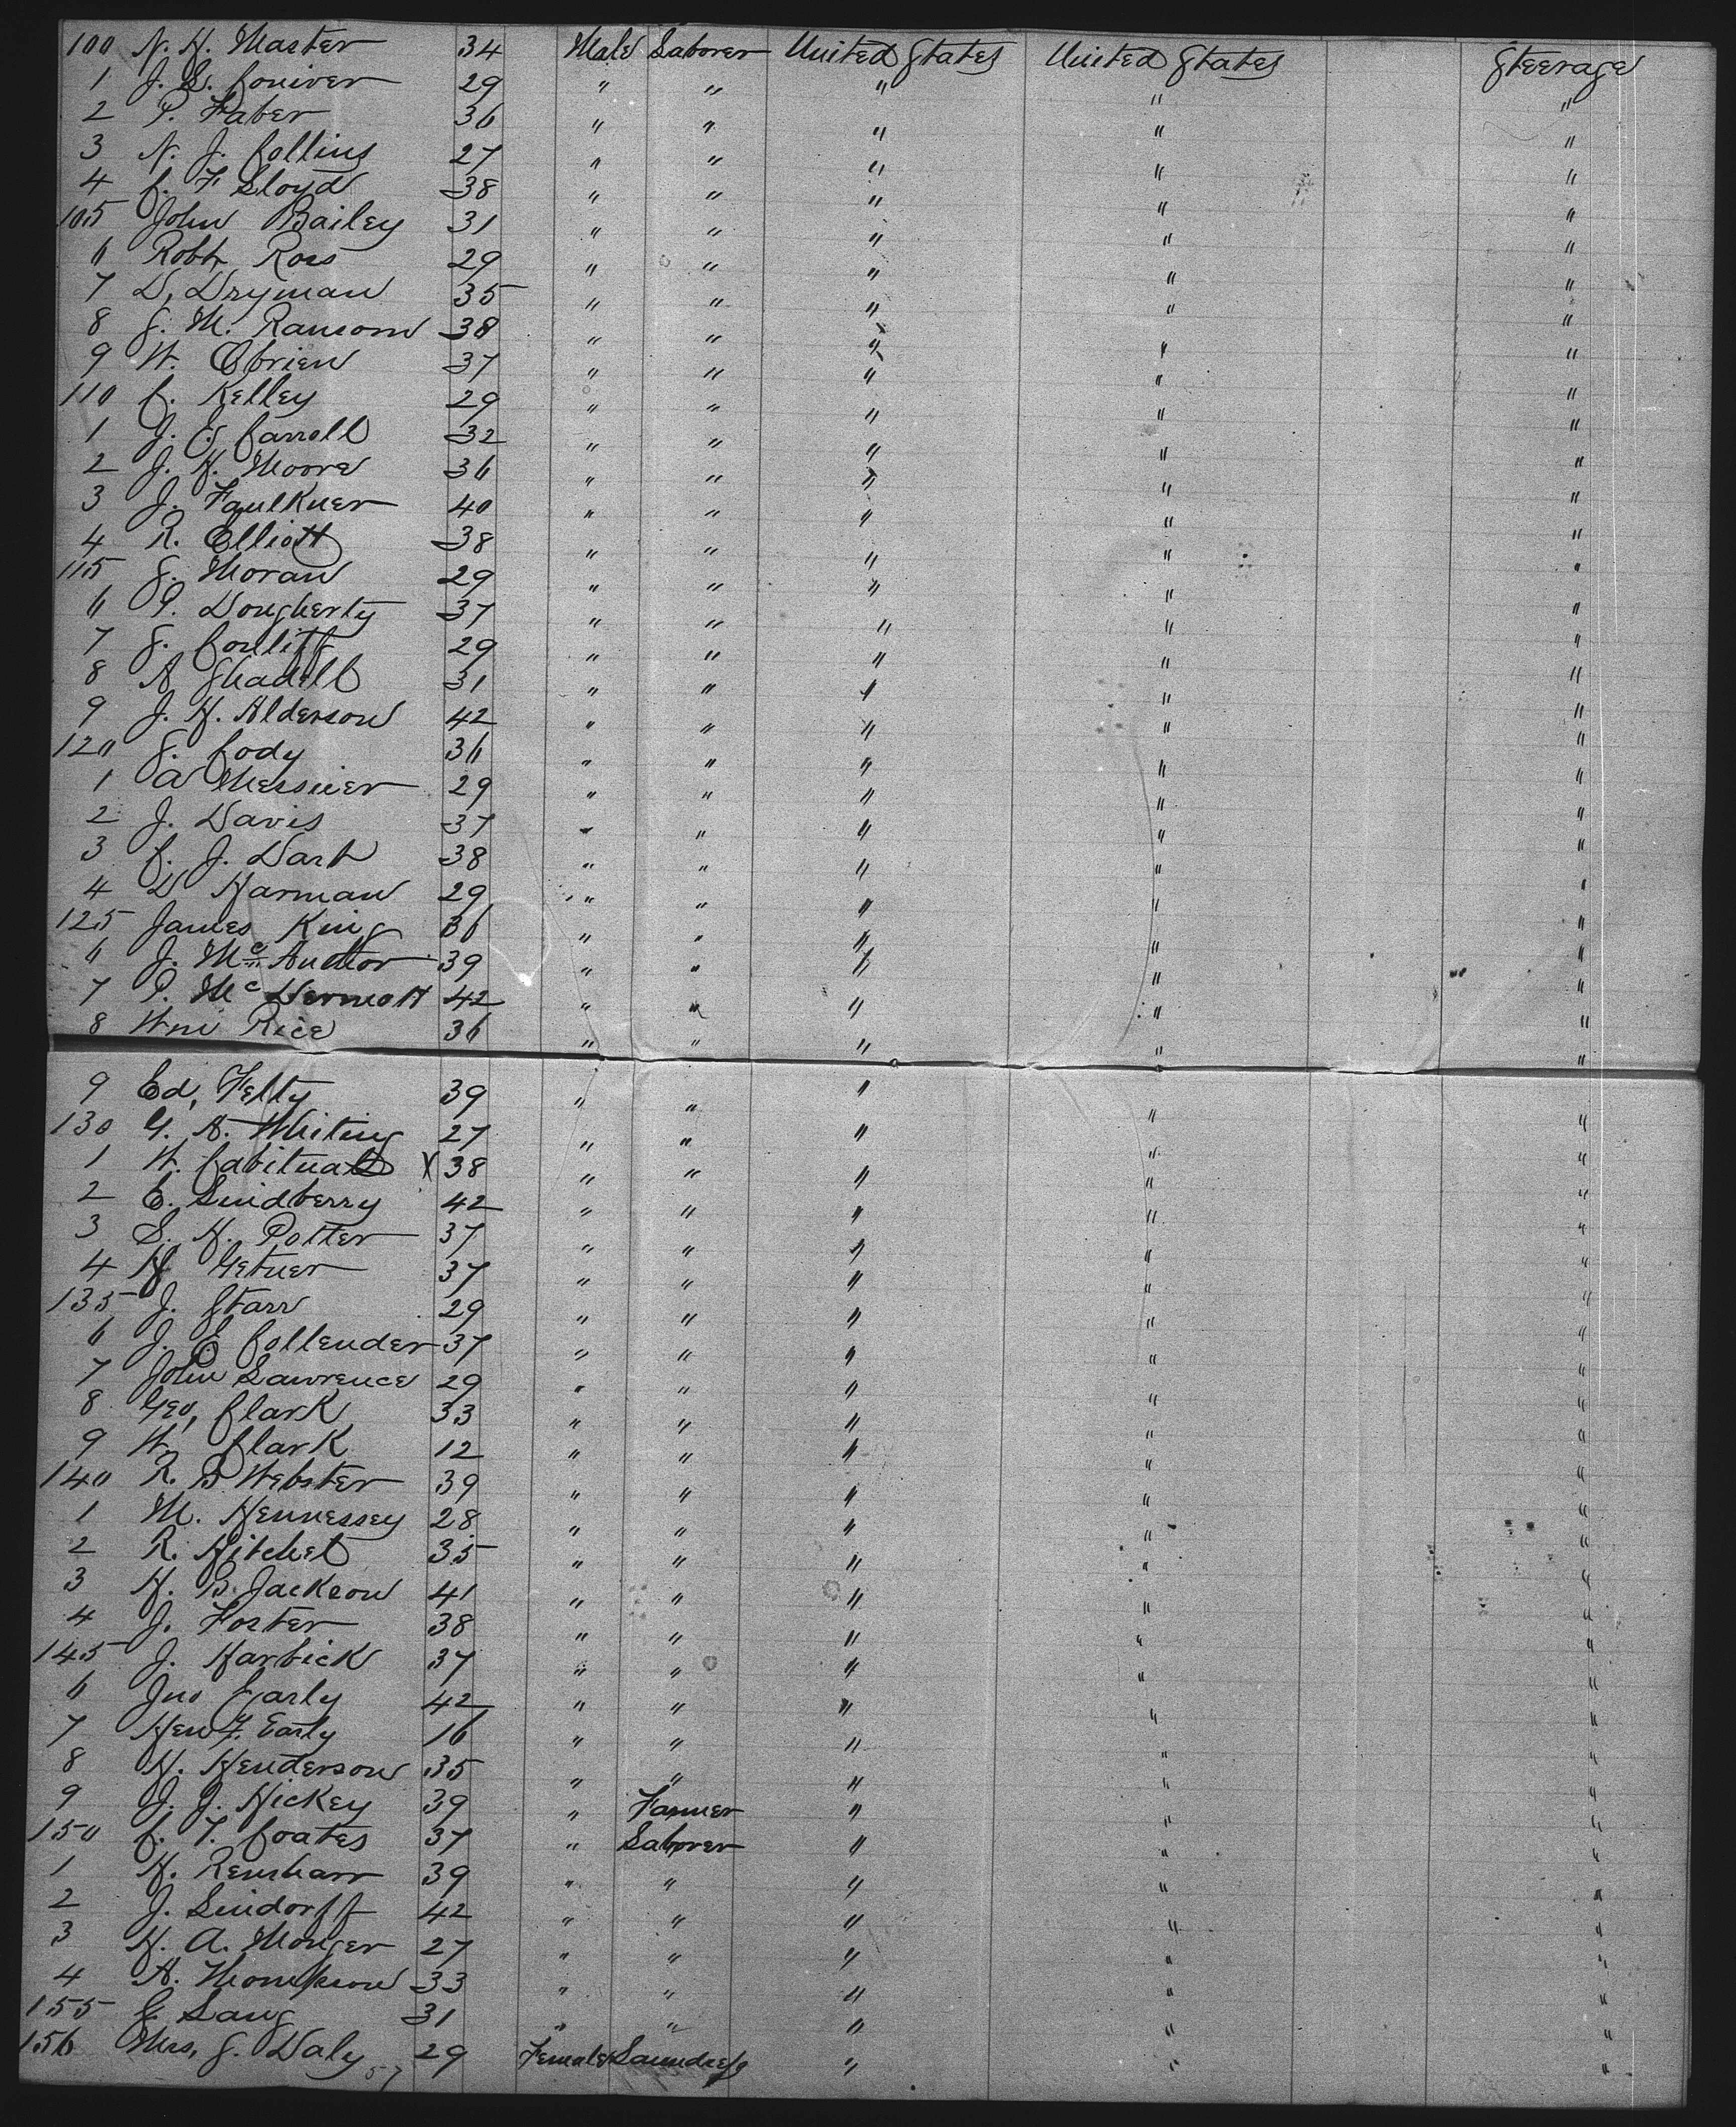 100 N. H. Master 34 Male Laborer United States United States Steerage
1 J. S. Coniver 29 " " " " "
2 P. Faber 36 " " " " "
3 N. J. Collins 27 " " " " "
4 C. F. Lloyd 38 " " " " "
105 John Bailey 31 " " " " "
6 Robt Ross 29 " " " " "
7 D. Dryman 35 " " " " "
8 S. M. Ransom 38 " " " " "
9 W. Obrien 37 " " " " "
110 C. Kelley 29 " " " " "
1 J. E. Carroll 32 " " " " "
2 J. H. Moore 36 " " " " "
3 J. Faulkner 40 " " " " "
4 R. Elliott 38 " " " " "
115 S. Moran 29 " " " " "
6 P. Dougherty 37 " " " " "
7 S. 29 " " " " "
8 A Shadell 31 " " " " "
9 J. H. Alderson 42 " " " " "
120 S. Cody 36 " " " " "
1 A Messner 29 " " " " "
2 J. Davis 37 " " " " "
3 C. J. Dart 38 " " " " "
4 D Harman 29 " " " " "
125 James King 36 " " " " "
6 J. 39 " " " " "
7 P. McDermott 42 " " " " "
8 Wm Rice 36 " " " " "
9 Ed, Felty 39 " " " " "
130 G. A. Whiting 27 " " " " "
1 W. X 38 " " " " "
2 E. Lindberry 42 " " " " "
3 S. H. Potter 37 " " " " "
4 H Getner 37 " " " " "
135 J. Starr 29 " " " " "
6 J. E Collender 37 " " " " "
7 John Lawrence 29 " " " " "
8 Geo, Clark 33 " " " " "
9 W. Clark 12 " " " " "
140 R. B Webster 39 " " " " "
1 M. Hennessey 28 " " " " "
2 R. Hitchel 35 " " " " "
3 H. B. Jackson 41 " " " " "
4 J. Foster 38 " " " " "
145 J. Harbick 37 " " " " "
6 Jno Early 42 " " " " "
7 Early 16 " " " " "
8 H. Henderson 35 " " " " "
9 J. J. Hickey 39 " Farmer " " "
150 C. T. Coates 37 " Laborer " " "
1 H. Renshaw 39 " " " " "
2 J. Lindorff 42 " " " " "
3 H. A. Monger 27 " " " " "
4 A. Thompson 33 " " " " "
155 Lang 31 " " " " "
156 Mrs, J. Daly 29 Female Laundress " " "
57